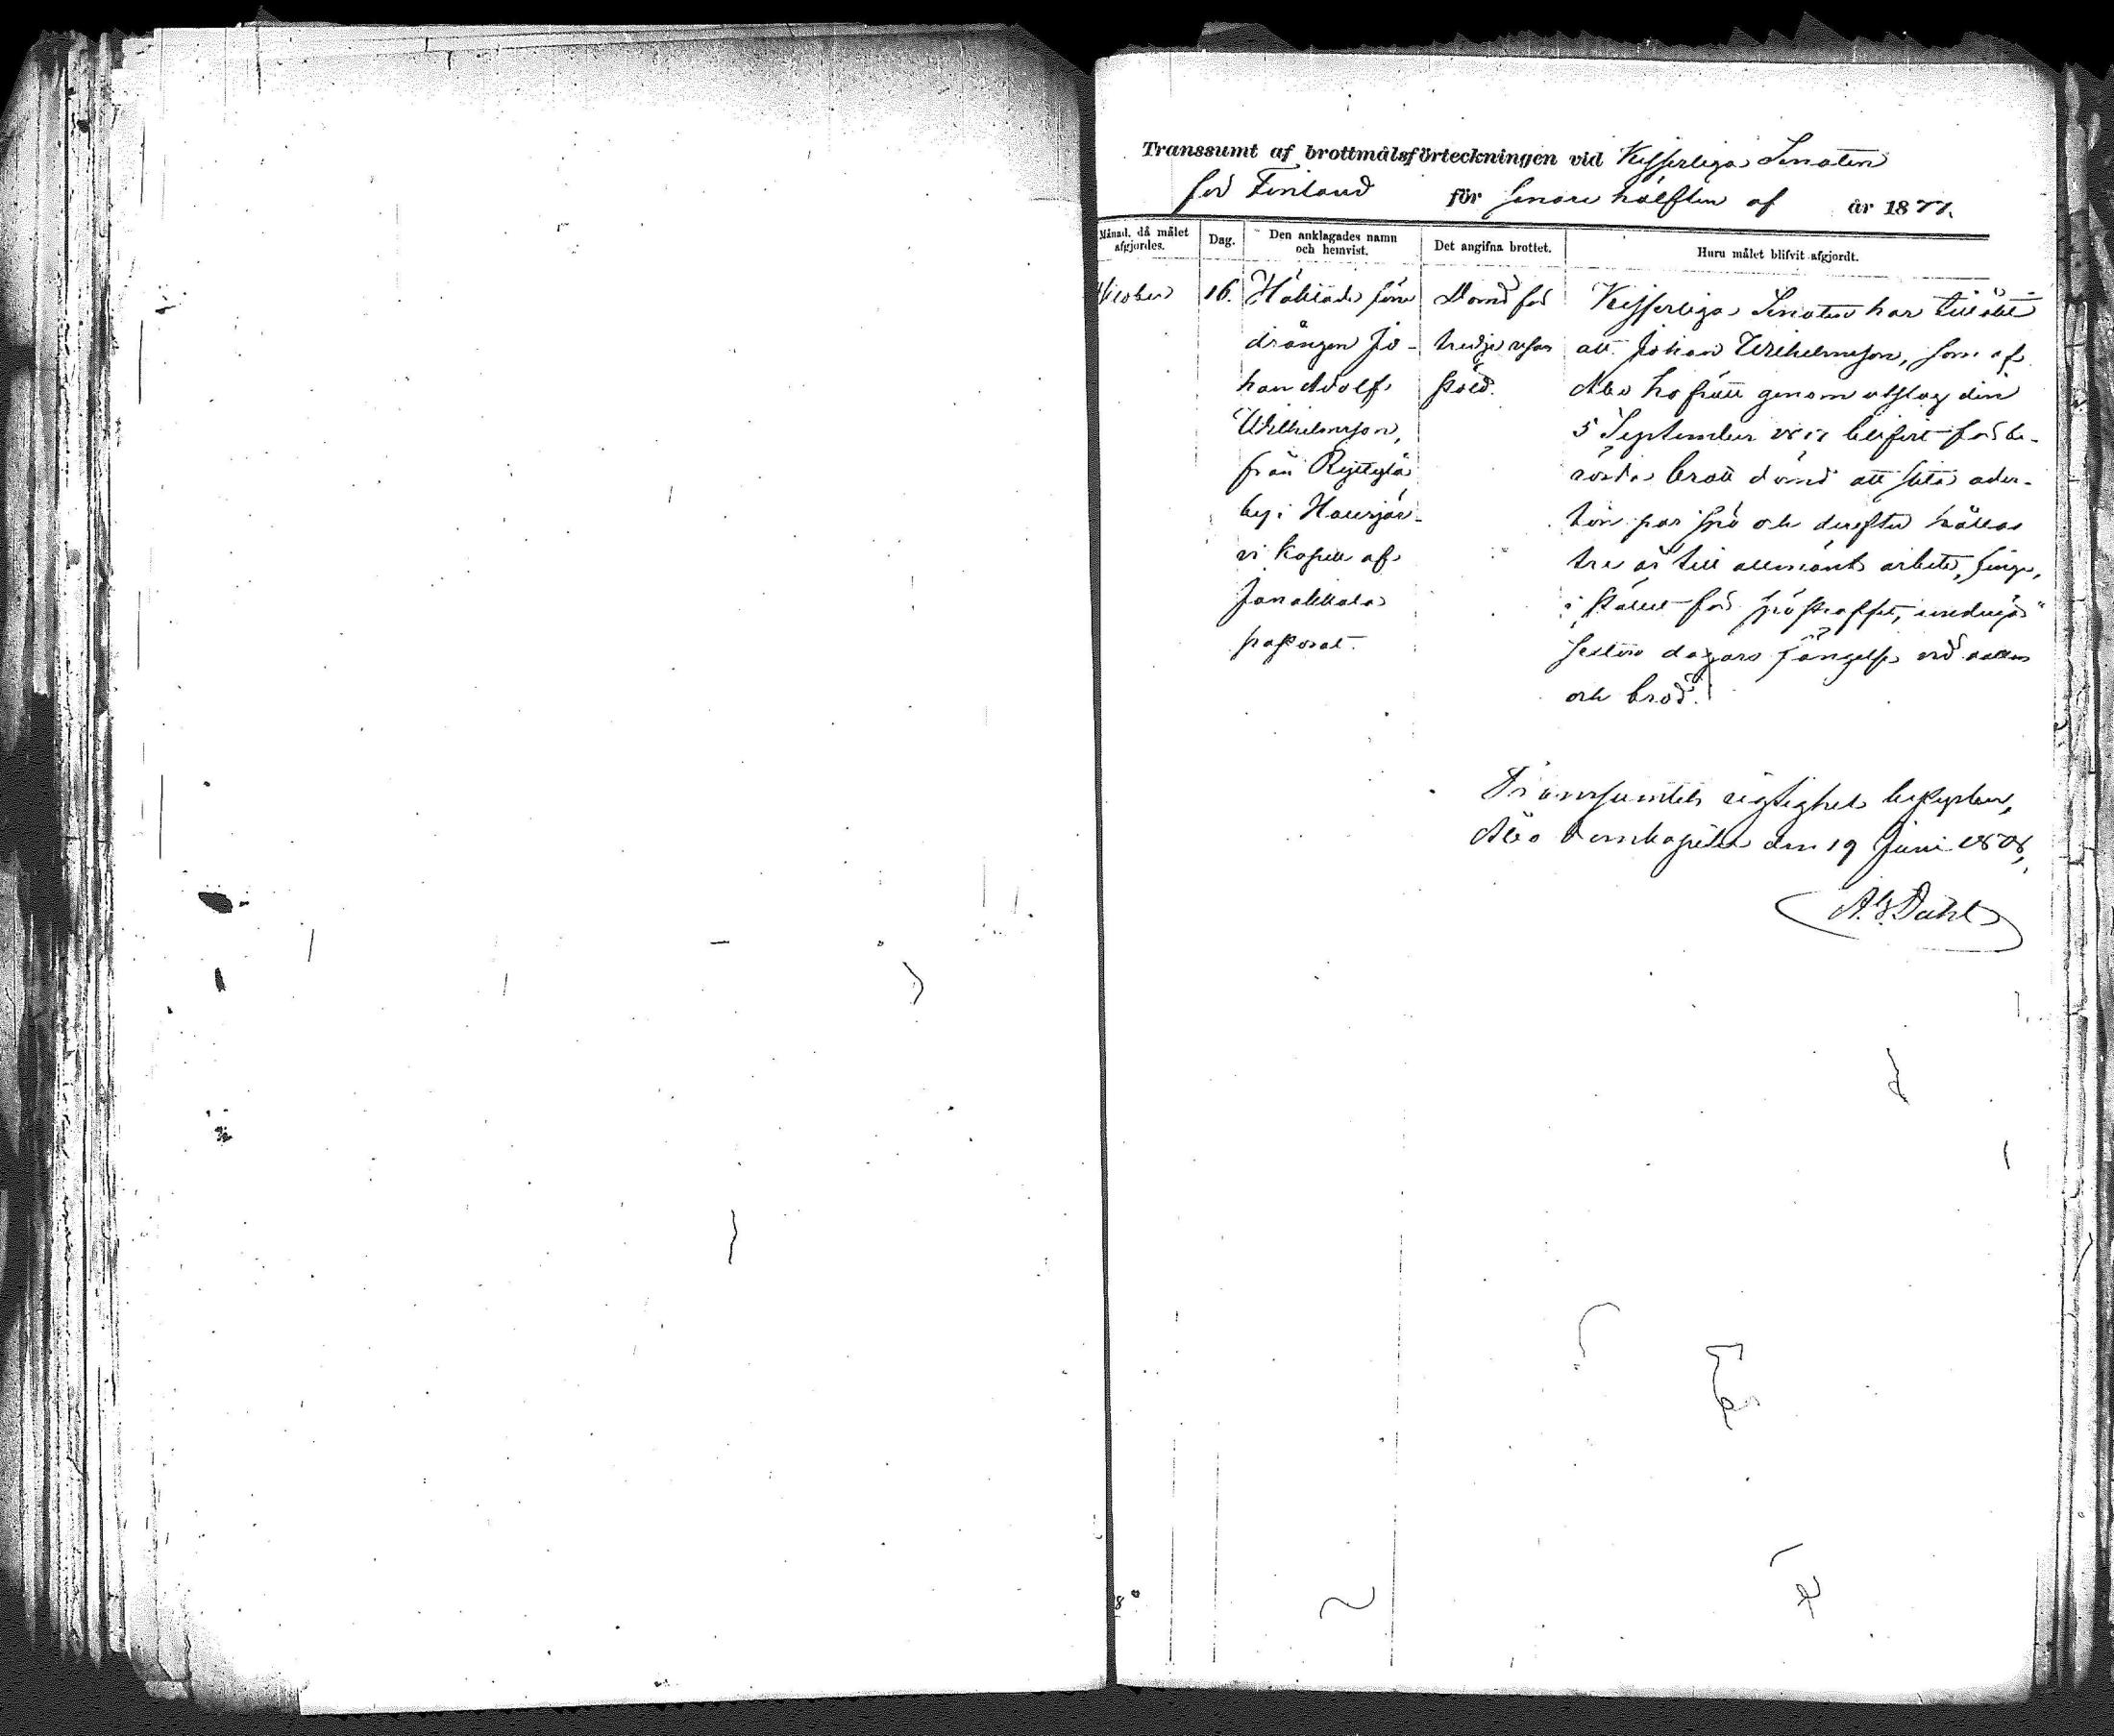 Transsumt af brottmålsförteckningen vid Kejserliga Senaten
för Finland för senare hälften af år 1877.
Månad, då målet afgjordes. Dag. Den anklagades namn och hemvist. Det angifna brottet. Huru målet blifvit afgjordt.
Oktober 16. Häktade förre Dömd för Kejserliga Senaten har tillåtit
drängen Jo- tredje resan att Johan Wilhelmsson, som af
han Adolf stöld. Åbo hofrätt genom utslag den
Wilhelmsson, 5 September 1877 blifvit för be-
från Ryttylä rörda brott dömd att slita ader-
by i Hausjär- ton par spö och derefter hållas
vi kapell af tre år till allmänt arbete, finge,
Janakkala i stället för spöstraffet, undergå
pastorat. sexton dagars fängelse vid vatten
och bröd.
Transsumtets rigtighet betygar,
Åbo Domkapitel den 19 Juni 1878,
Dahl